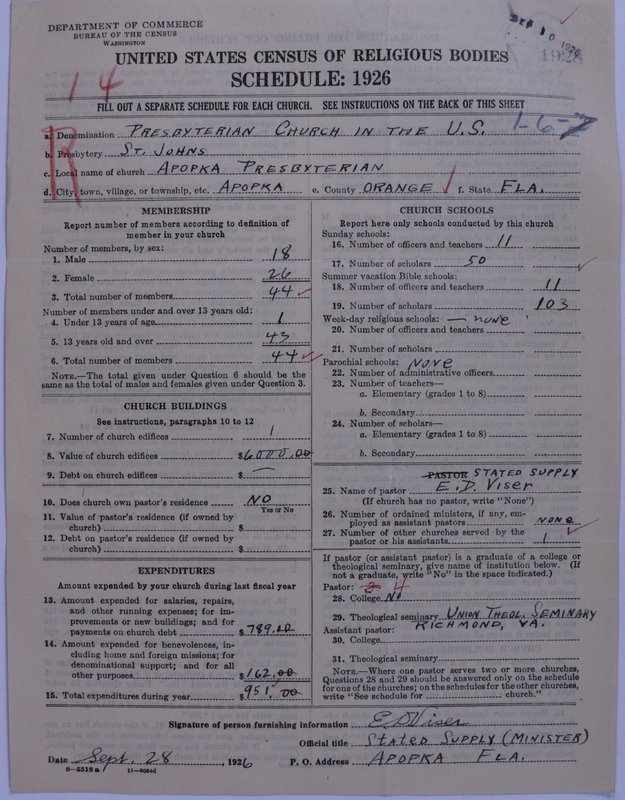 DEPARTMENT OF COMMERCE
BUREAU OF THE CENSUS
WASHINGTON
SEP 10 1926
1928
UNITED STATES CENSUS OF RELIGIOUS BODIES
SCHEDULE: 1926
14
FILL OUT A SEPARATE SCHEDULE FOR EACH CHURCH. SEE INSTRUCTIONS ON THE BACK OF THIS SHEET
R
a. Denomination PRESBYTERIAN CHURCH IN THE U.S. 1-6-7
b. Presbytery ST. JOHNS
c. Local name of church APOPKA PRESBYTERIAN
d. City, town, village, or township, etc. APOPKA e. County ORANGE f. State FLA.
MEMBERSHIP
Report number of members according to definition of
member in your church
Number of members, by sex:
1. Male 18
2. Female 26
3. Total number of members 44
Number of members under and over 13 years old:
4. Under 13 years of age 1
5. 13 years old and over 43
6. Total number of members 44
NOTE.—The total given under Question 6 should be
same as the total of males and females given under Question 3.
CHURCH BUILDINGS
See instructions, paragraphs 10 to 12
7. Number of church edifices 1
8. Value of church edifices $6000.00
9. Debt on church edifices $ —
10. Does church own pastor's residence NO
Yes or No
11. Value of pastor's residence (if owned by
church) $
12. Debt on pastor's residence (if owned by
church) $
EXPENDITURES
Amount expended by your church during last fiscal year
13. Amount expended for salaries, repairs,
and other running expenses; for im-
provements or new buildings; and for
payments on church debt $789.00
14. Amount expended for benevolences, in-
cluding home and foreign missions; for
denominational support; and for all
other purposes $162.00
15. Total expenditures during year $951.00
CHURCH SCHOOLS
Report here only schools conducted by this church
Sunday schools:
16. Number of officers and teachers 11
17. Number of scholars 50
Summer vacation Bible schools:
18. Number of officers and teachers 11
19. Number of scholars 103
Week-day religious schools: — none
20. Number of officers and teachers
21. Number of scholars
Parochial schools: None
22. Number of administrative officers
23. Number of teachers—
a. Elementary (grades 1 to 8)
b. Secondary
24. Number of scholars—
a. Elementary (grades 1 to 8)
b. Secondary
PASTOR STATED SUPPLY
25. Name of pastor E. D. Viser
(If church has no pastor, write "None")
26. Number of ordained ministers, if any, em-
ployed as assistant pastors NONE
27. Number of other churches served by the
pastor or his assistants 1
If pastor (or assistant pastor) is a graduate of a college or
theological seminary, give name of institution below. (If
not a graduate, write "No" in the space indicated.)
Pastor: 4
28. College No
29. Theological seminary UNION THEOL. SEMINARY
RICHMOND, VA.
Assistant pastor:
30. College
31. Theological seminary
NOTE.—Where one pastor serves two or more churches,
Questions 28 and 29 should be answered only on the schedule
for one of the churches; on the schedules for the other churches,
write "See schedule for church."
Signature of person furnishing information E D Viser
Official title STATED SUPPLY (MINISTER)
Date Sept. 28, 1926 P. O. Address APOPKA FLA.
8—5518a 11—9084d